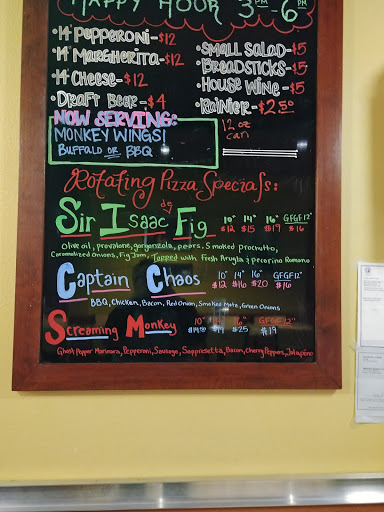 HAPPY HOUR 3PM-6PM
•14" PEPPERONI-$12
•14" MARGHERITA-$12
•14" CHEESE-$12
•DRAFT BEER-$4
•SMALL SALAD-$5
•BREADSTICKS-$5
•HOUSE WINE-$5
•RAINIER-$2.50
12 oz can
NOW SERVING:
MONKEY WINGS!
BUFFALO OR BBQ
Rotating Pizza Specials:
Sir Isaac de Fig 10" 14" 16" GFGF12"
$12 $15 $19 $16
Olive oil, provolone, gorgonzola, pears, Smoked proscuitto,
Caramelized Onions, Fig Jam, Topped with Fresh Arugla & pecorino Romano
Captain Chaos 10" 14" 16" GFGF12"
$12 $16 $20 $16
BBQ, Chicken, Bacon, Red Onion, Smoked Motz, Green Onions
Screaming Monkey 10" 16" GFGF 12"
$19 $25 $19
Ghost Pepper Marinara, Pepperoni, Sausage, Soppresetta, Bacon, Cherry Peppers, Jalapeño